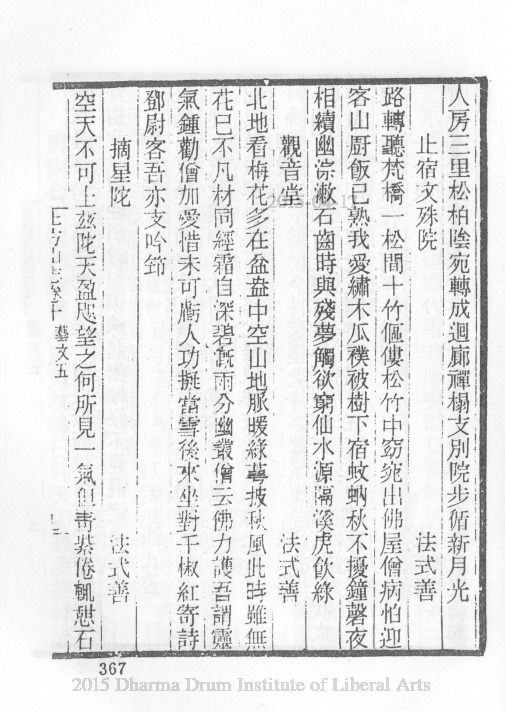 人房三里松柏陰宛轉成迴廊禪榻支別院步循新月光
止宿文殊院 法式善
路轉聽梵橋一松間十竹傴僂松竹中窈窕出佛屋僧病怕迎
客山厨飯已熟我愛繡木瓜襆被樹下宿蚊蚋秋不擾鐘磬夜
相續幽淙漱石齒時與殘夢觸欲窮仙水源隔溪虎飲綠
觀音堂 法式善
北地看梅花多在盆盎中空山地脈暖綠萼披秋風此時雖無
花已不凡材同經霜自深碧戲雨分幽叢僧云佛力護吾謂靈
氣鍾勸僧加愛惜未可虧人功擬當雪後來坐對千椒紅寄詩
鄧尉客吾亦支吟筇
摘星陀 法式善
空天不可上茲陀天盈咫望之何所見一氣但青紫倦輒憇石
藝文五
367
2015 Dharma Drum Institute of Liberal Arts